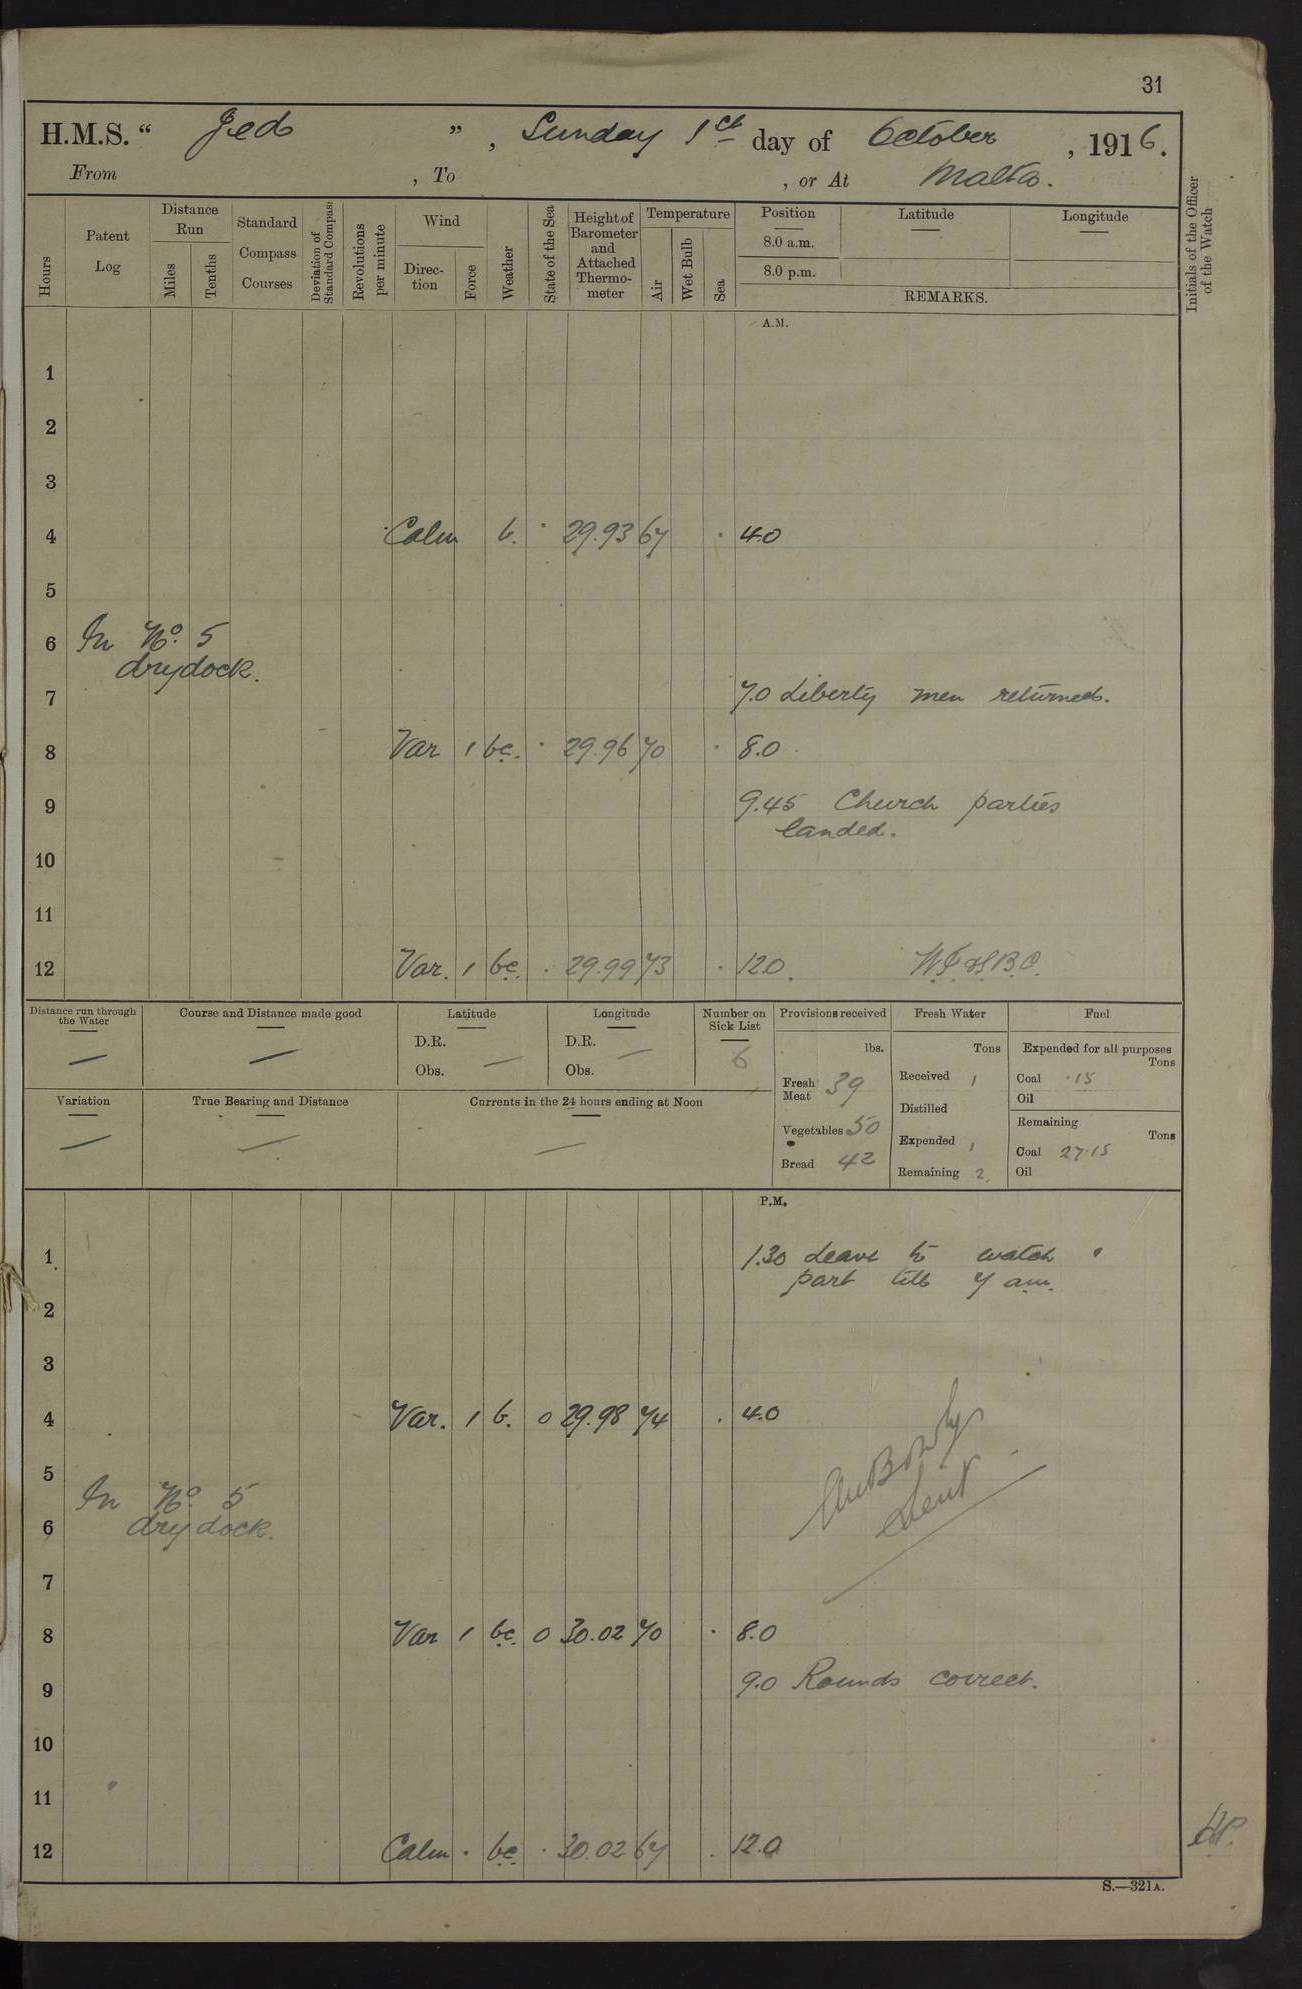 31
H.M.S. “ Jed ”, Sunday 1st day of October, 1916.
From , To , or At Malta.
Hours
Patent Log
Distance Run
Miles
Tenths
Standard Compass Courses
Deviation of Standard Compass
Revolutions per minute
Wind
Direction
Force
Weather
State of the Sea
Height of Barometer and Attached Thermometer
Temperature
Air
Wet Bulb
Sea
Position
8.0 a.m.
8.0 p.m.
Latitude
Longitude
REMARKS.
Initials of the Officer of the Watch
A.M.
1
2
3
4 Calm b. 29.93 67 4.0
5
6 In No. 5
drydock.
7 7.0 Liberty men returned.
8 Var 1 bc. 29.96 70 8.0
9 9.45 Church parties
landed.
10
11
12 Var. 1 bc. 29.99 73 12.0
Distance run through the Water —
Course and Distance made good —
Latitude
D.R. —
Obs.
Longitude
D.R. —
Obs.
Number on Sick List
6
Provisions received
lbs.
Fresh Meat 39
Vegetables 50
Bread 42
Fresh Water
Tons
Received 1
Distilled
Expended 1
Remaining 2
Fuel
Expended for all purposes
Tons
Coal ·15
Oil
Remaining
Tons
Coal 27·15
Oil
Variation —
True Bearing and Distance —
Currents in the 24 hours ending at Noon —
P.M.
1 1.30 Leave to watch
part till 7 am.
2
3
4 Var. 1 b. 0 29.98 74 4.0
5 In No. 5
6 drydock.
7
8 Var 1 bc. 0 30.02 70 8.0
9 9.0 Rounds correct.
10
11
12 Calm · bc 30.02 67 12.0
S.—321A.